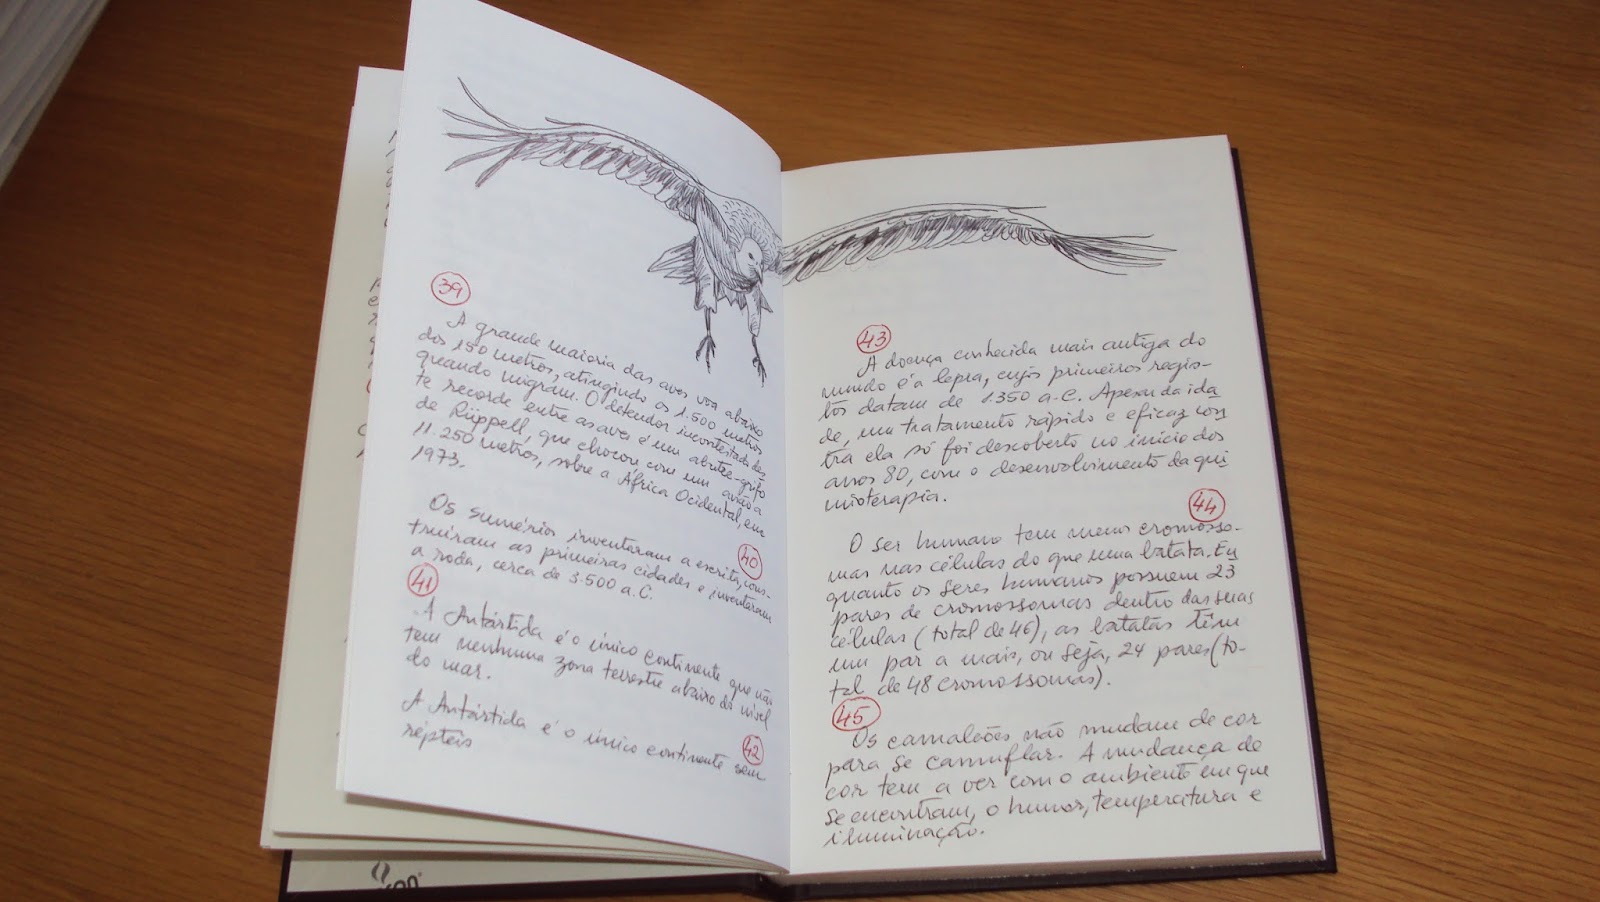 39
A grande maioria das aves voa abaixo
dos 150 metros, atingindo os 1.500 metros
quando migram. O detentor incontestado des-
te recorde entre as aves é um abutre-grifo
de Rüppell, que chocou com um avião a
11.250 metros, sobre a África Ocidental, em
1973.
40
Os sumérios inventaram a escrita, cons-
truíram as primeiras cidades e inventaram
a roda, cerca de 3.500 a.C.
41
A Antártida é o único continente que não
tem nenhuma zona terrestre abaixo do nível
do mar.
42
A Antártida é o único continente sem
répteis
43
A doença conhecida mais antiga do
mundo é a lepra, cujos primeiros regis-
tos datam de 1.350 a.C. Apesar da ida-
de, um tratamento rápido e eficaz con-
tra ela só foi descoberto no início dos
anos 80, com o desenvolvimento da qui-
mioterapia.
44
O ser humano tem menos cromosso-
mas nas células do que uma batata. En
quanto os seres humanos possuem 23
pares de cromossomas dentro das suas
células (total de 46), as batatas têm
um par a mais, ou seja, 24 pares (to-
tal de 48 cromossomas).
45
Os camaleões não mudam de cor
para se camuflar. A mudança de
cor tem a ver com o ambiente em que
se encontram, o humor, temperatura e
iluminação.